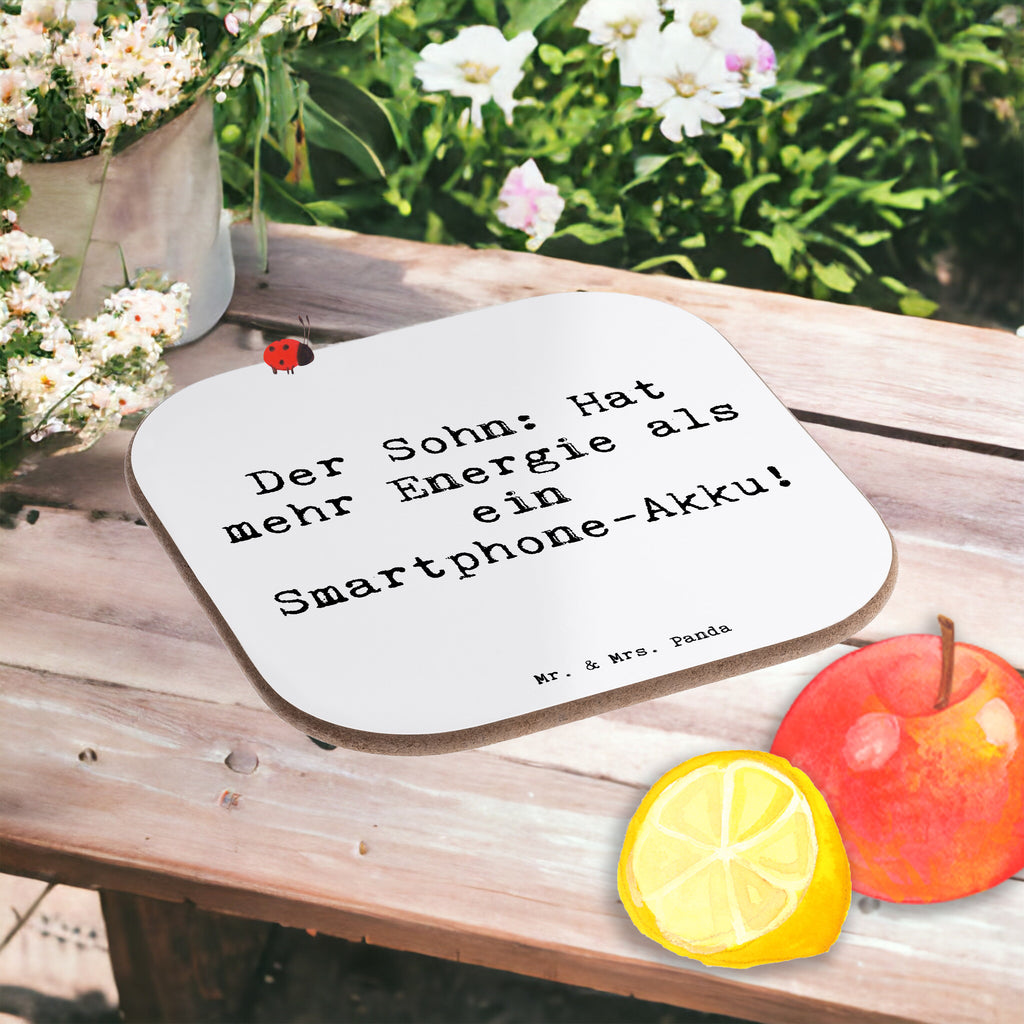 Der Sohn: Hat
mehr Energie als
ein
Smartphone-Akku!
Mr. & Mrs. Panda